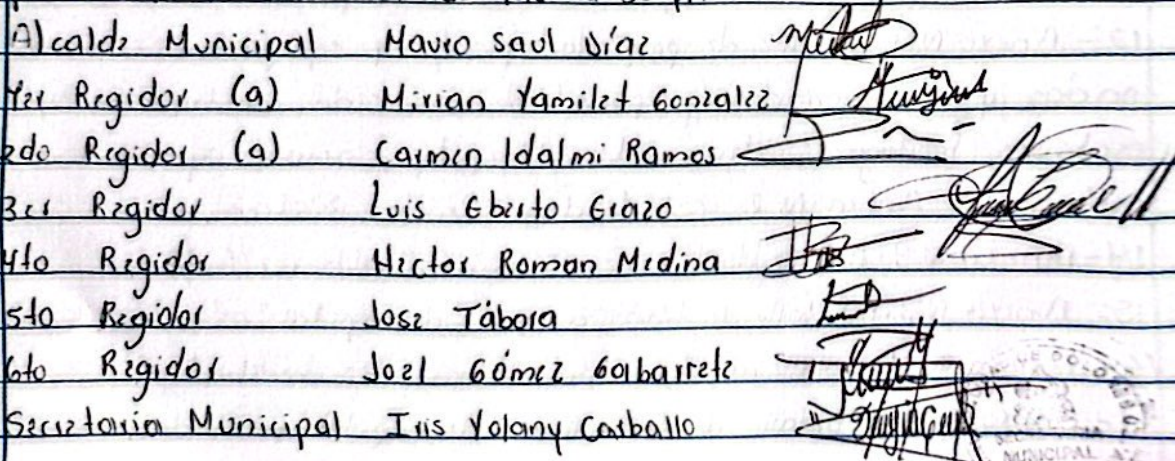 Alcalde Municipal Mauro Saul Díaz
1er Regidor (a) Mirian Yamilet Gonzalez
2do Regidor (a) Carmen Idalmi Ramos
3er Regidor Luis Eberto Erazo
4to Regidor Hector Roman Medina
5to Regidor Jose Tábora
6to Regidor Joel Gómez Galbarrete
Secretaria Municipal Iris Yolany Carballo
MUNICIPAL